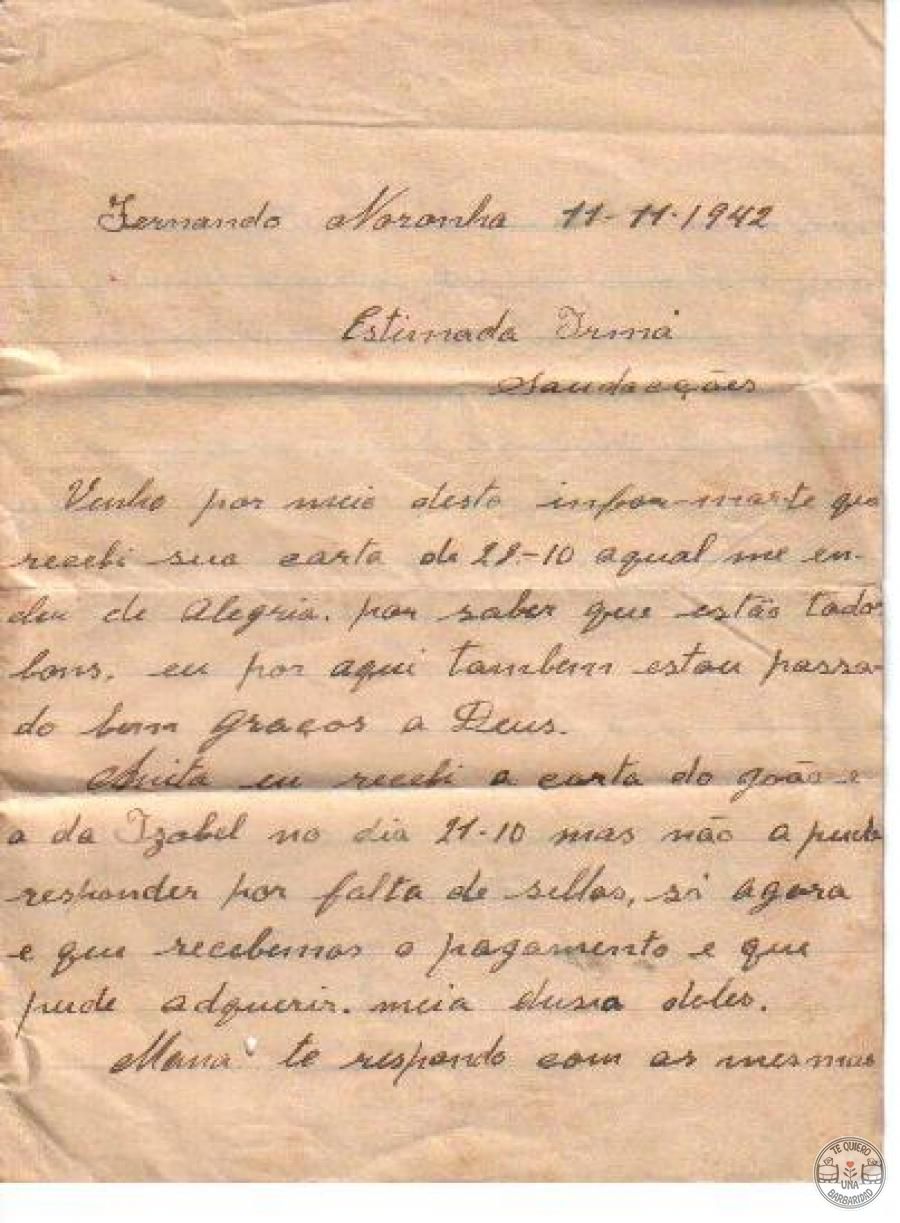 Fernando Noronha 11-11-1942
Estimada Irmá
Saudacções
Venho por meio desta infor-marte que
recebi sua carta de 28-10 aqual me en-
deu de alegria. por saber que estão todos
bons. eu por aqui tambem estou passa-
do bem graços a Deus.
Anita eu recebi a carta do João e
a da Izabel no dia 21-10 mas não a pude
responder por falta de sellos, si agora
e que recebemos o pagamento e que
pude adquerir. meia dusia deles.
Maná te respondo com as mesmas
TE QUIERO
UNA
BARBARIDAD